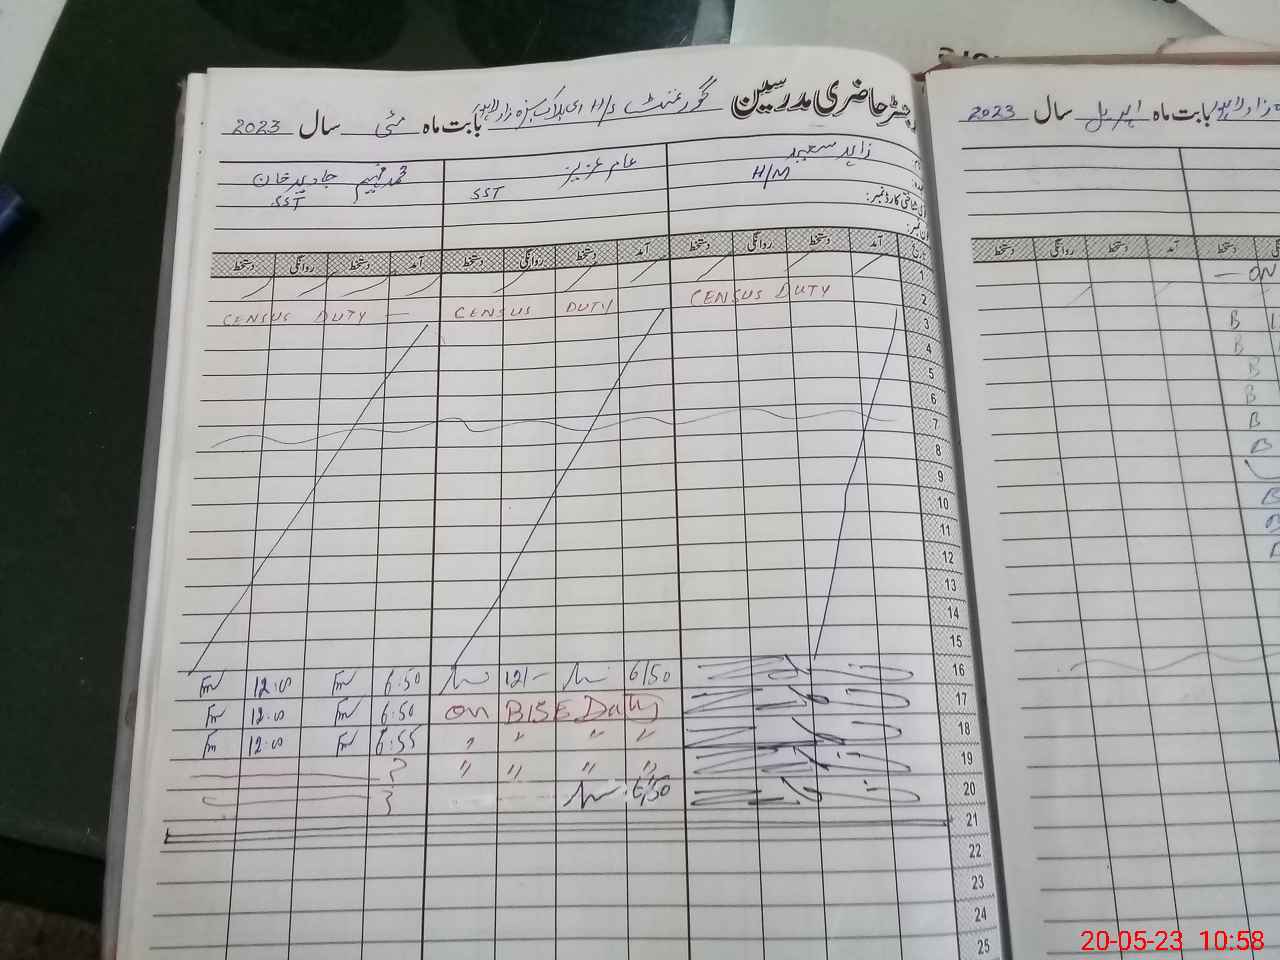 رجسٹر حاضری مدرسین گورنمنٹ H/S ای بلاک سبزہ زار لاہور بابت ماہ مئی سال 2023
زاہد سعید عامر عزیز محمد فہیم جاوید خان
H/M SST SST
آمد دستخط روانگی دستخط آمد دستخط روانگی دستخط آمد دستخط روانگی دستخط
1
2
CENSUS DUTY — CENSUS DUTY CENSUS DUTY
3
4
5
6
7
8
9
10
11
12
13
14
15
Fm 12:00 Fm 6:50 12/- 6/50 16
Fm 12:00 Fm 6:50 On BISE Duty 17
Fm 12:00 Fm 6:55 " " " " 18
? " " " " 19
? 6/50 20
21
22
23
24
25
بابت ماہ اپریل سال 2023
آمد دستخط روانگی دستخط
دستخط
— ON
B
B
B
B
B
B
B
B
B
20-05-23 10:58